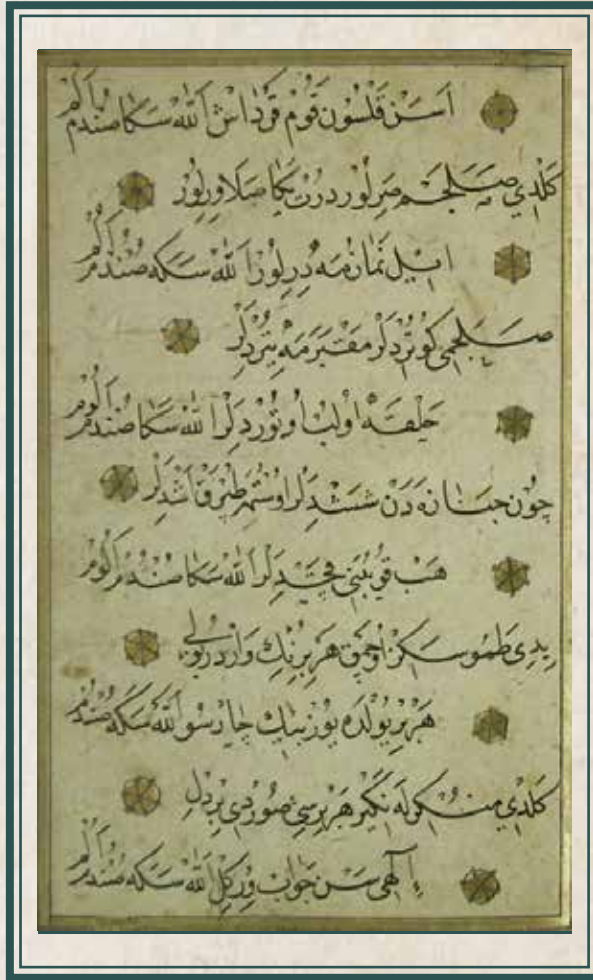 اَسَنْ قَلْسُونْ قَوُمْ قَرْدَاشْ اَللّٰهْ سَكَا صُنْدُمْ اَلُمْ
كَلْدِي صَلَجَمْ صَرِلُورْ دُرْتْ يَكَا صَلَا وِرِلُورْ
اِيلْ نَمَازُمَه دِرِلُورْ اَللّٰهْ سَكَه صُنْدُمْ اَلُمْ
صَلَجَمِي كَوتُرْدِلَرْ مَقْبَرَمَه يَتُرْدِلَرْ
حَلْقَه اُولُبْ اُوتُورْدِلَرْ اَللّٰهْ سَكَا صُنْدُمْ اَلُومْ
چُونْ جَنَازَه دَنْ شَشْدِلَرْ اُوشْتُمَه طُپْرَقْ اَشْدِلَرْ
هَبْ قَيُوبْ بَنِي قَچْدِلَرْ اَللّٰهْ سَكَا صُنْدُمْ اَلُومْ
يِدِي طَمُو سَكِزْ اُوچْمَقْ هَرْ بِرِنُكْ وَارْدُرْ يُولِي
هَرْ بِرْ يُولْدَه يُوزْ بِيكْ چَارْسُو اَللّٰهْ سَكَه صُنْدُمْ اَلُمْ
كَلْدِي مُنْكَرْلَه نَكِيرْ هَرْ بِرِسِي صُورْدِي بِرْ دِلْ
اِلٰهِي سَنْ جَوَابْ وِرْكِلْ اَللّٰهْ سَكَه صُنْدُمْ اَلُمْ